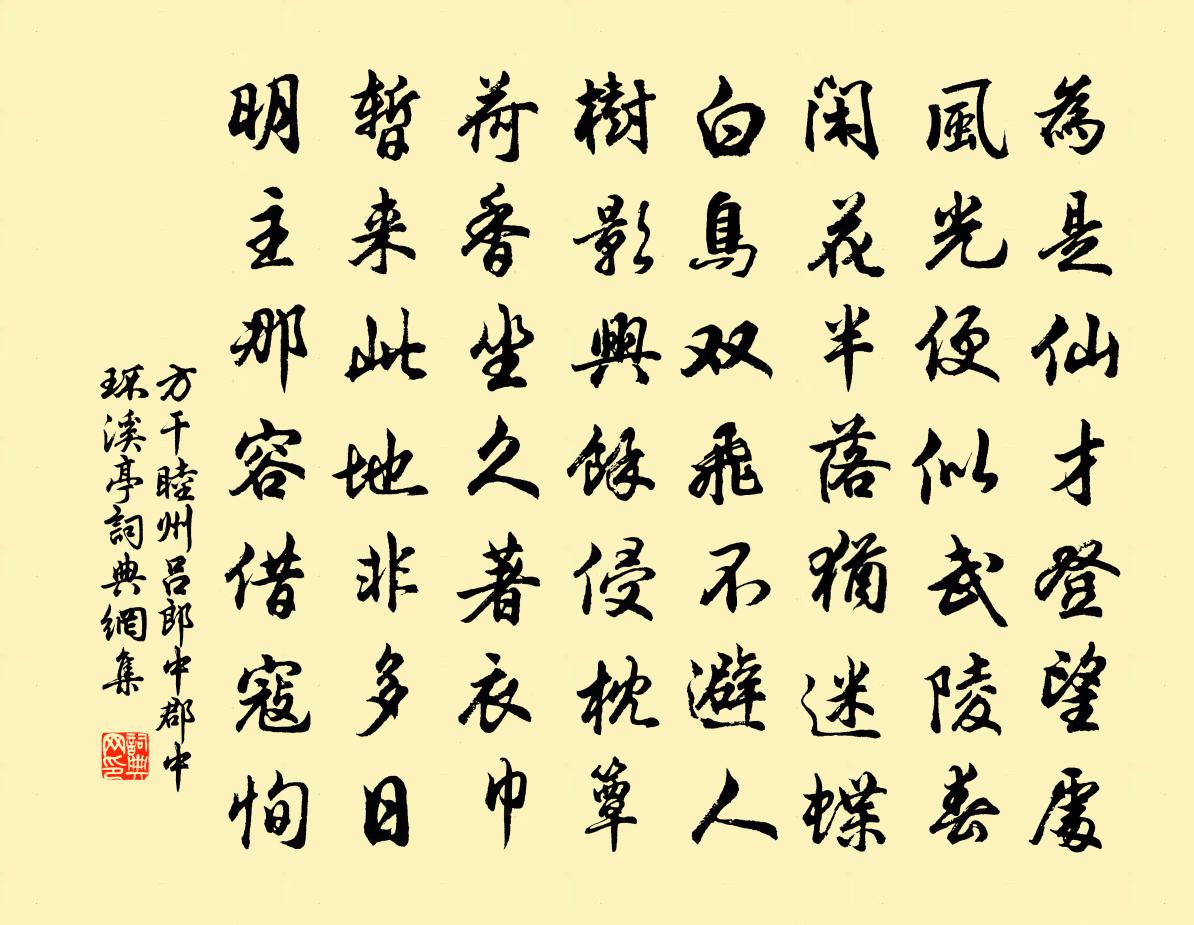 為是仙才登望處
風光便似武陵春
閑花半落猶迷蝶
白鳥双飛不避人
樹影興餘侵枕簟
荷香坐久著衣巾
暫来此地非多日
明主那容借寇恂
方干睦州呂郎中郡中
环溪亭詞典網集
詞典网印